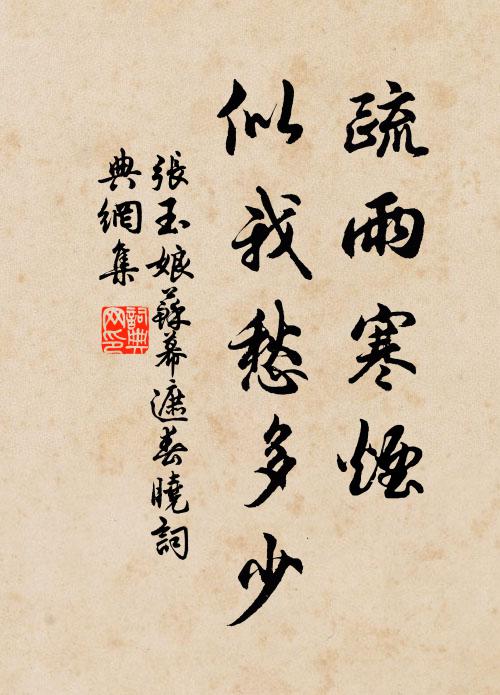 疏雨寒煙
似我愁多少
張玉娘蘇幕遮春曉詞
典網集
詞典
网印